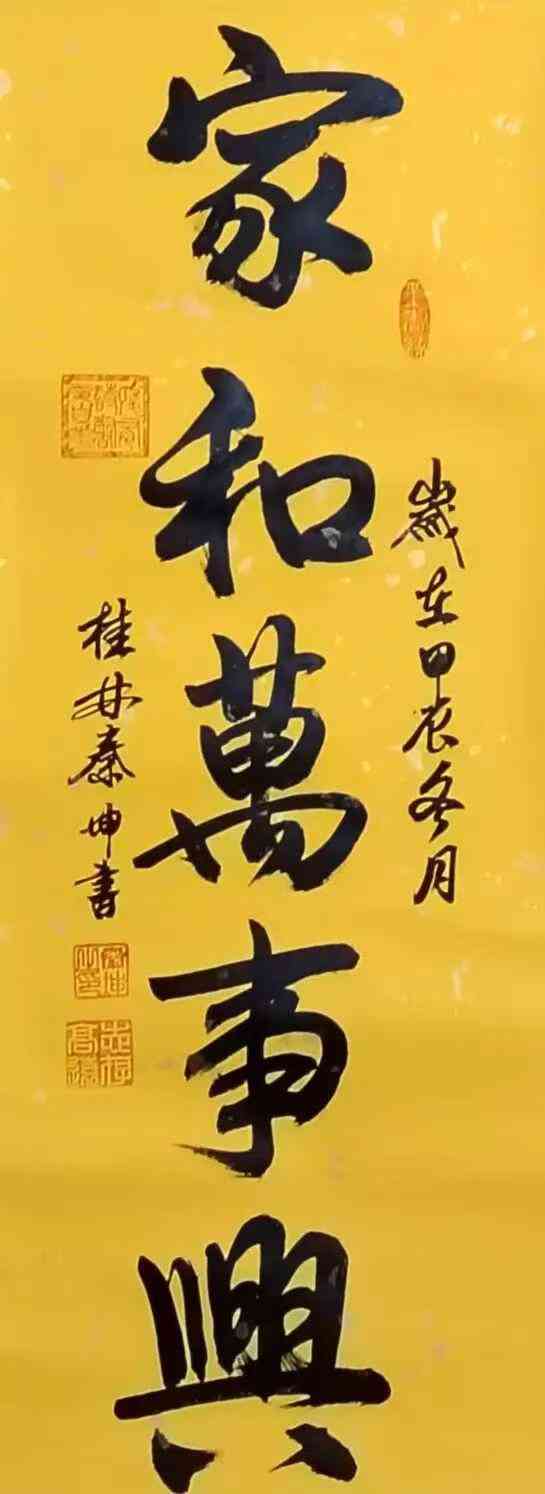 家和萬事興
歲在甲辰冬月
桂林秦坤書